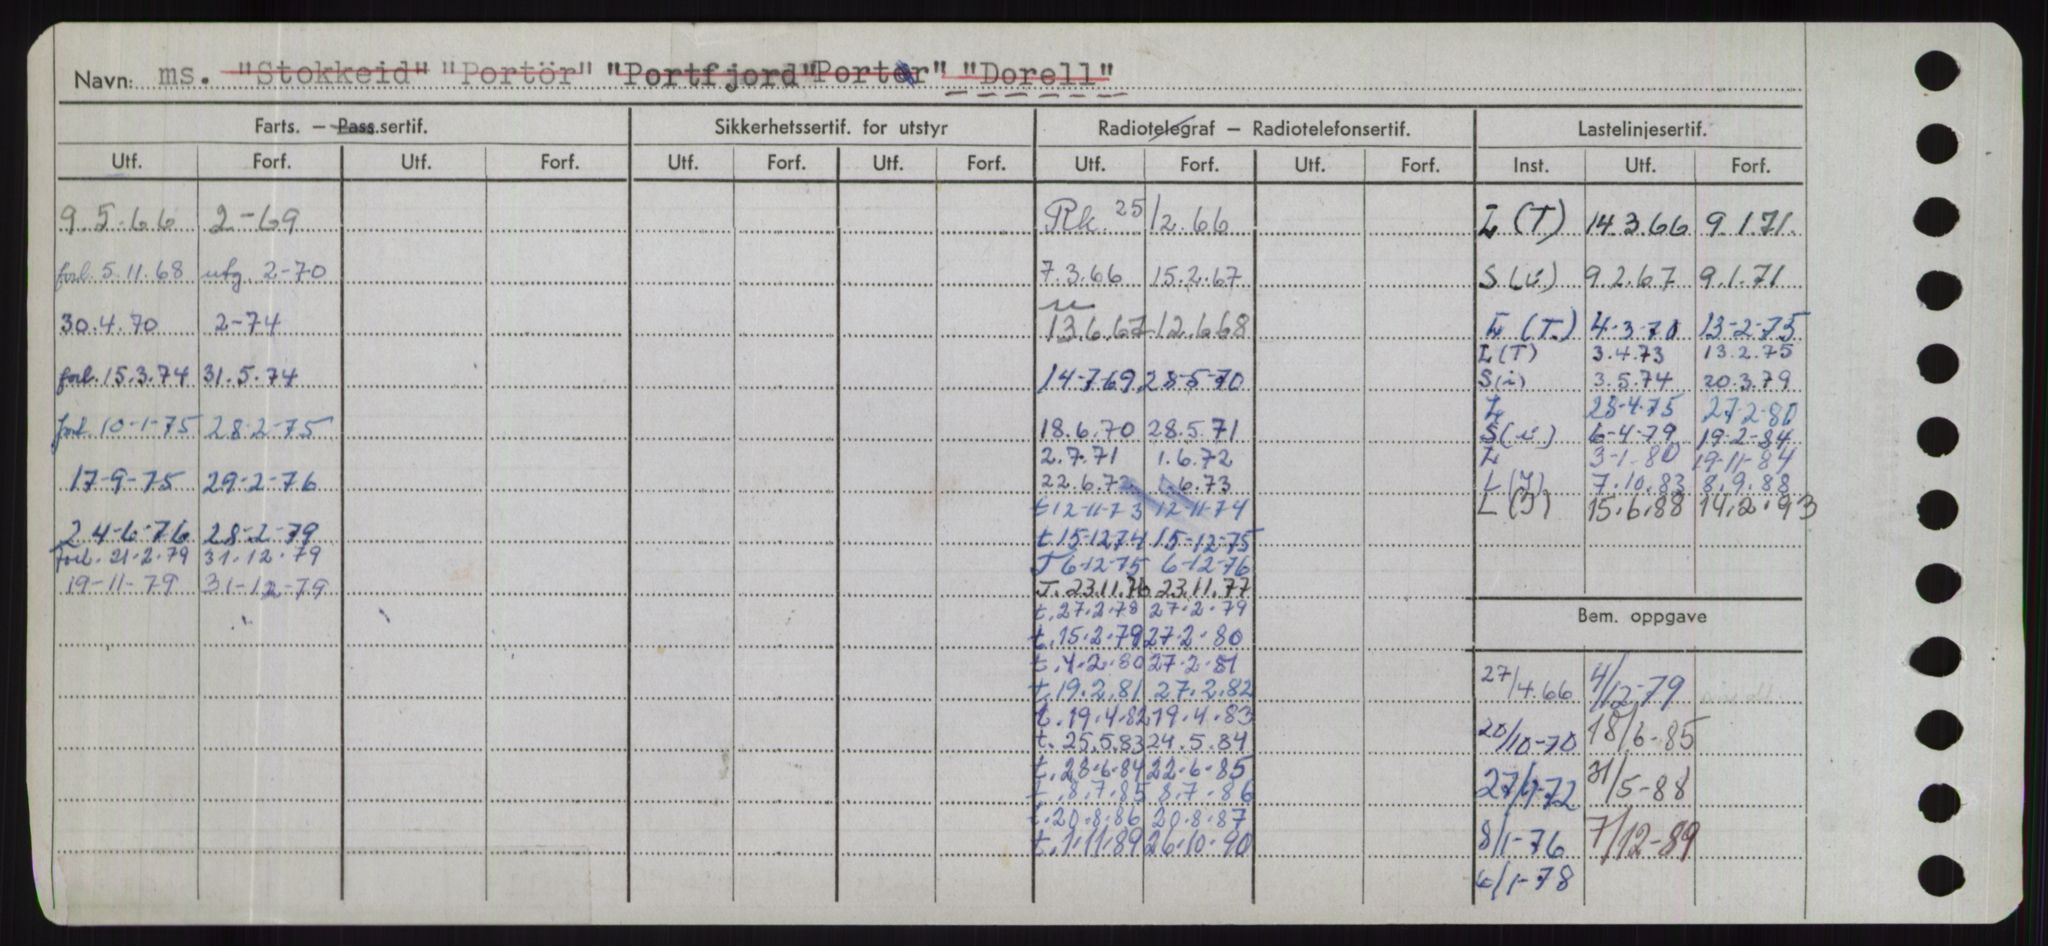 Navn: ms. "Stokkeid" "Portör" "Portfjord" Portør" "Dorell"
Farts. – Pass.sertif. Sikkerhetssertif. for utstyr Radiotelegraf – Radiotelefonsertif. Lastelinjesertif.
Utf. Forf. Utf. Forf. Utf. Forf. Utf. Forf. Utf. Forf. Utf. Forf. Inst. Utf. Forf.
9.5.66 2-69 Rk. 25/2.66 L (T) 14.3.66 9.1.71.
forl. 5.11.68 utg. 2-70 7.3.66 15.2.67 S (u) 9.2.67 9.1.71
30.4.70 2-74 13.6.67 12.6.68 L (T.) 4-3-70 13-2-75
L (T) 3.4.73 13.2.75
forl. 15.3.74 31.5.74 14-7-69 28-5-70 S (i) 3.5.74 20.3.79
L 28-4-75 27-2-80
forl. 10-1-75 28-2-75 18.6.70 28.5.71 S (u) 6-4-79 19-2-84
2.7.71 1.6.72 L 3-1-80 19-11-84
17-9-75 29-2-76 22.6.72 1.6.73 L (I) 7.10.83 8.9.88
t 12-11-73 12-11-74 L (I) 15.6.88 14.2.93
24-6-76 28-2-79 t. 15-12-74 15-12-75
forl. 21.2.79 31.12.79 T 6-12-75 6-12-76
19-11-79 31-12-79 T. 23.11.76 23.11.77
t. 27.2.78 27.2.79 Bem. oppgave
t. 15.2.79 27.2.80
t. 4.2.80 27.2.81 27/4.66 4/12-79
t. 19.2.81 27.2.82
t. 19.4.82 19.4.83 20/10-70 18/6-85
t. 25.5.83 24.5.84
t. 28.6.84 22.6.85 27/9-72 31/5-88
t. 8.7.85 8.7.86
t. 20.8.86 20.8.87
t. 1.11.89 26.10.90 8/1-76 7/12-89
6/1-78